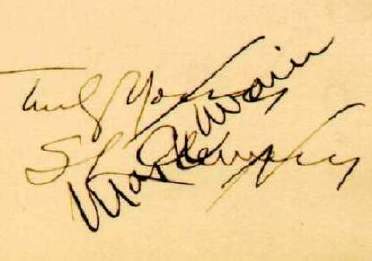 Truly Yours
S L Clemens
Mark Twain